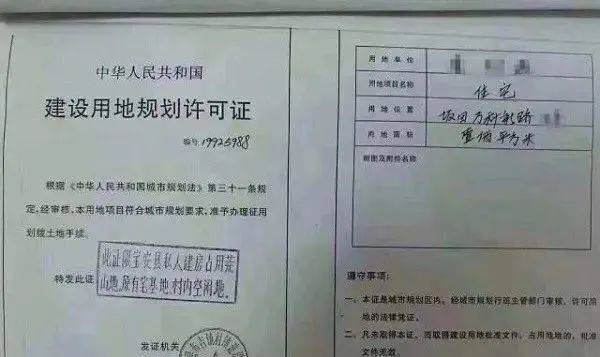 中华人民共和国
建设用地规划许可证
编号 19925988
根据《中华人民共和国城市规划法》第三十一条规
定,经审核,本用地项目符合城市规划要求,准予办理征用
划拨土地手续。
特发此证
此证限宝安县私人建房占用荒
山地、原有宅基地、村内空闲地。
发证机关
用地单位
用地项目名称 住宅
用地位置 坂田万科
用地面积 壹佰平方米
附图及附件名称
遵守事项:
一、本证是城市规划区内,经城市规划行政主管部门审核,许可用
地的法律凭证。
二、凡未取得本证,而取得建设用地批准文件、占用地地的,批准
文件无效。